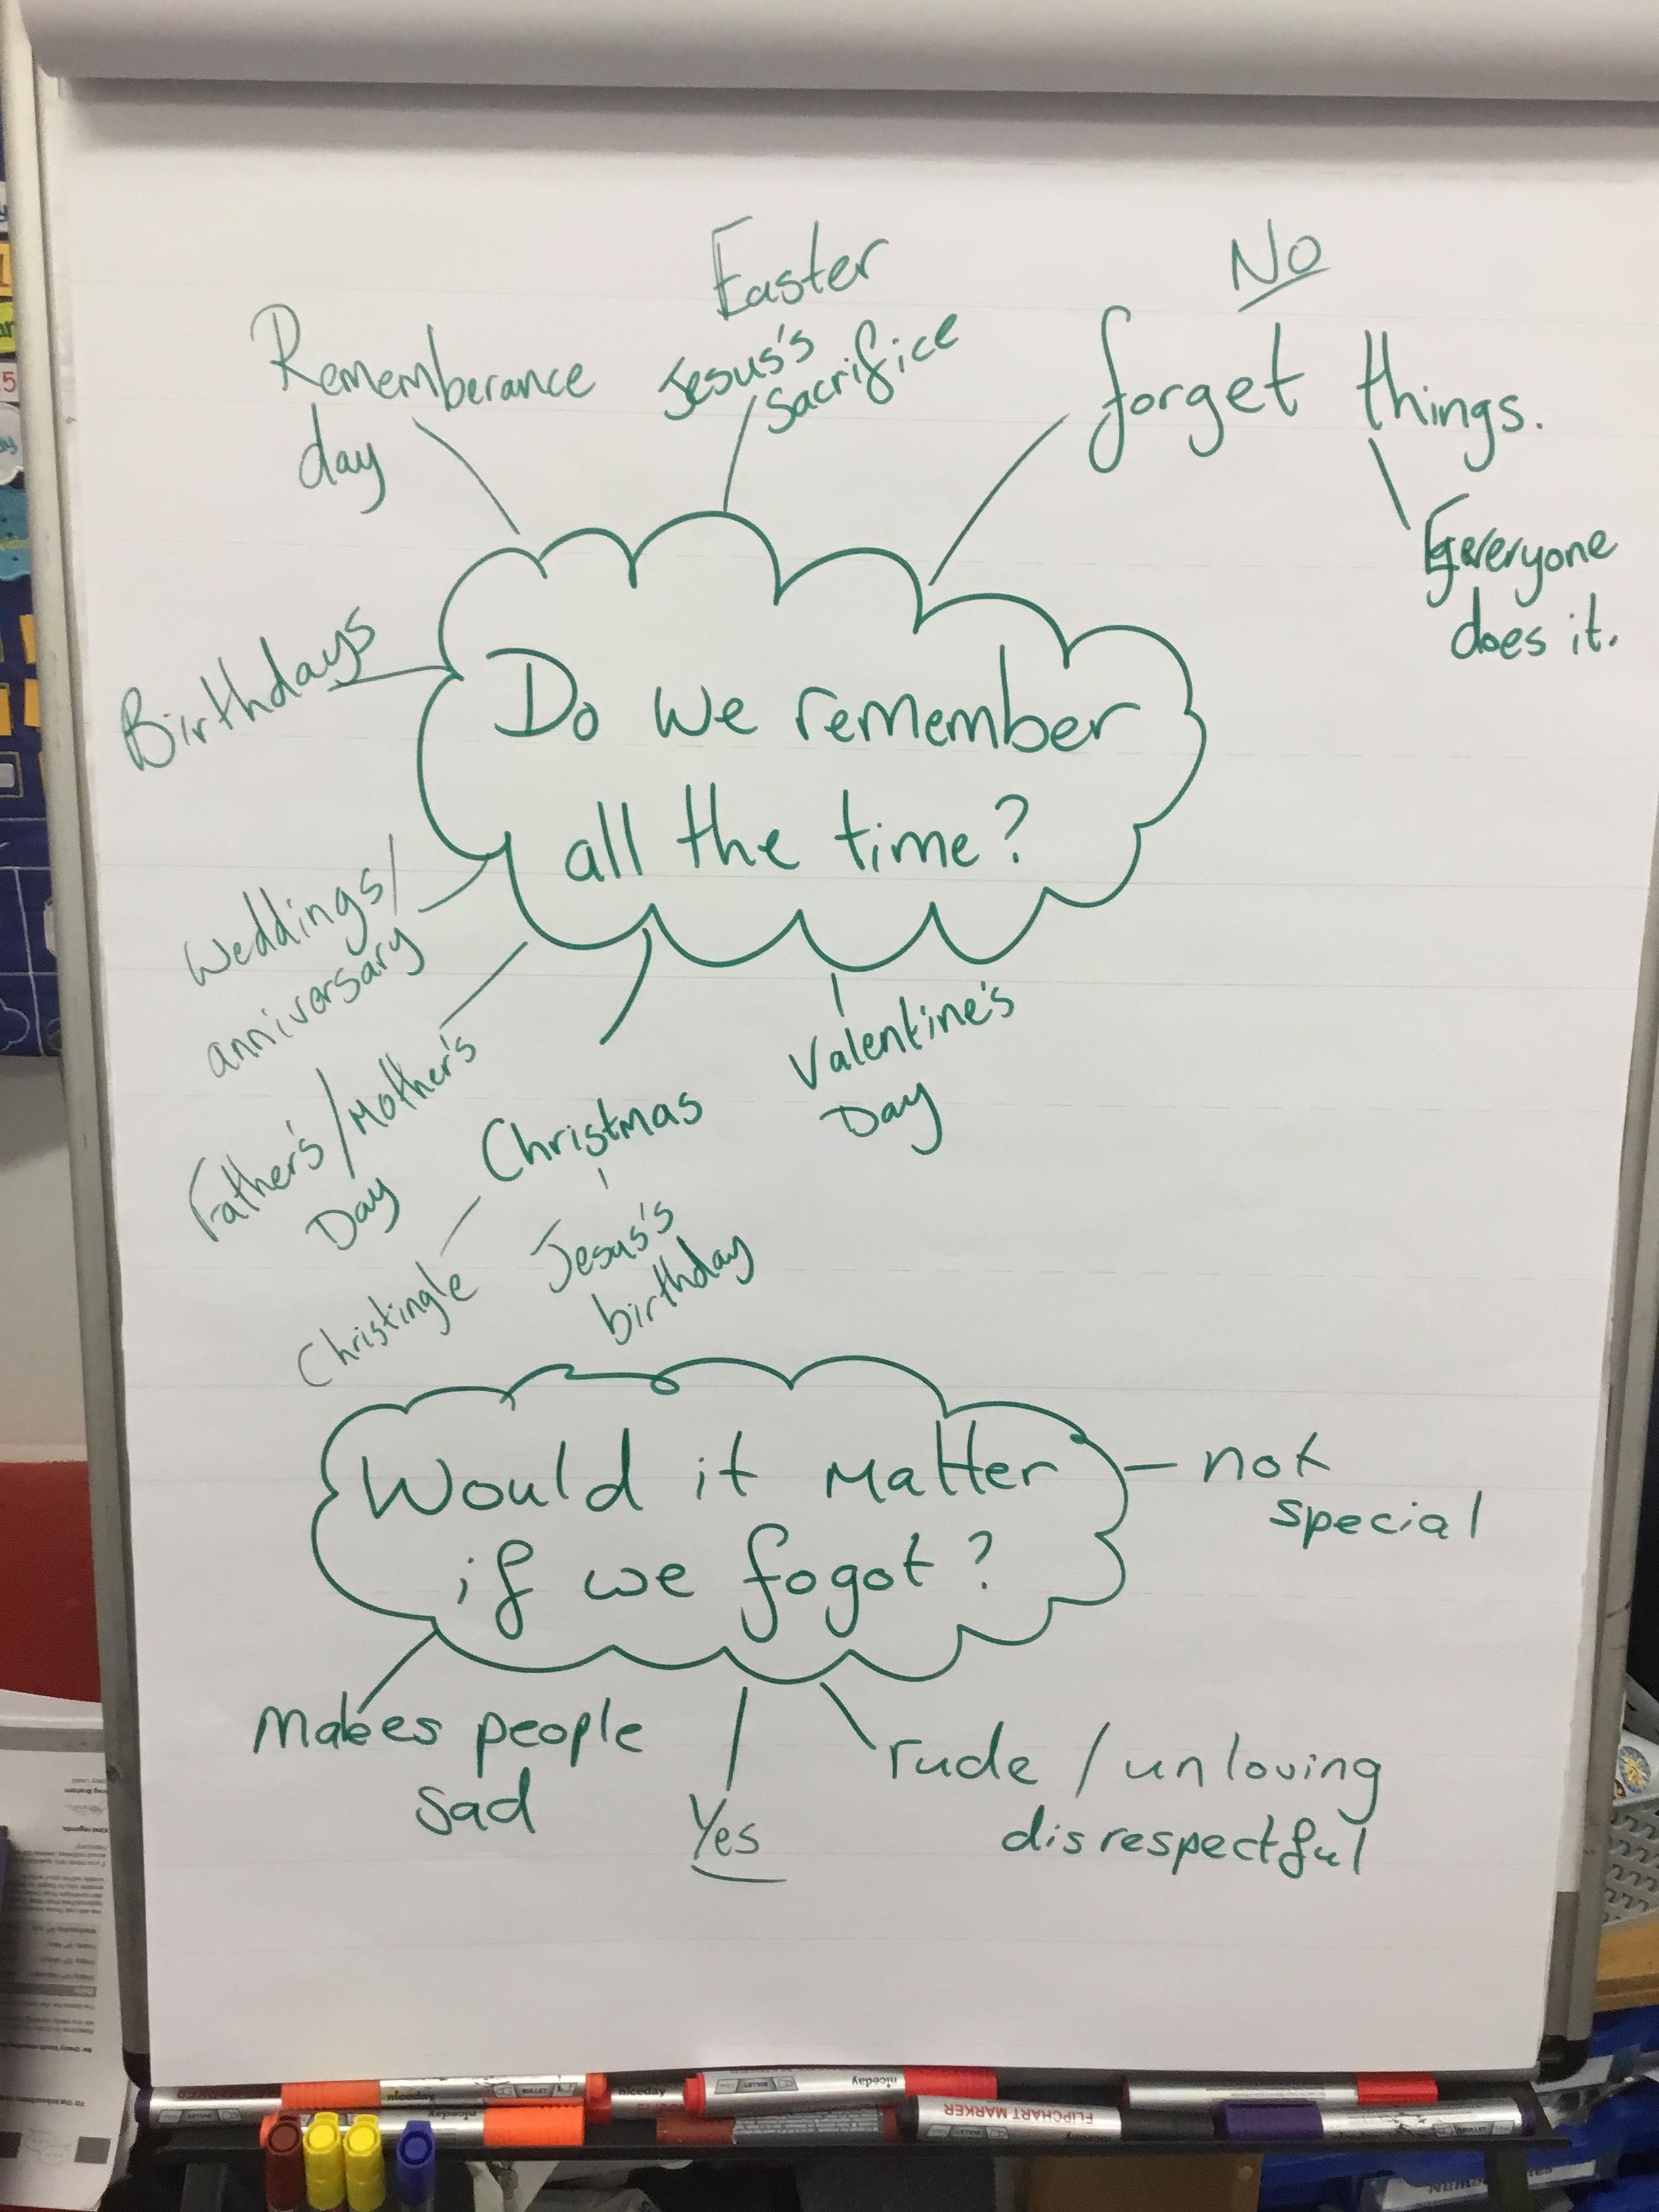 Easter
Jesus's
sacrifice
NO
forget things.
Everyone
does it.
Rememberance
day
Birthdays
Do we remember
all the time?
Weddings/
anniversary
Father's/Mother's
Day
Christmas
Christingle
Jesus's
birthday
Valentine's
Day
Would it Matter
if we fogot?
not
special
makes people
sad
Yes
rude / unloving
disrespectful
niceday
niceday
niceday
niceday
FLIPCHART MARKER